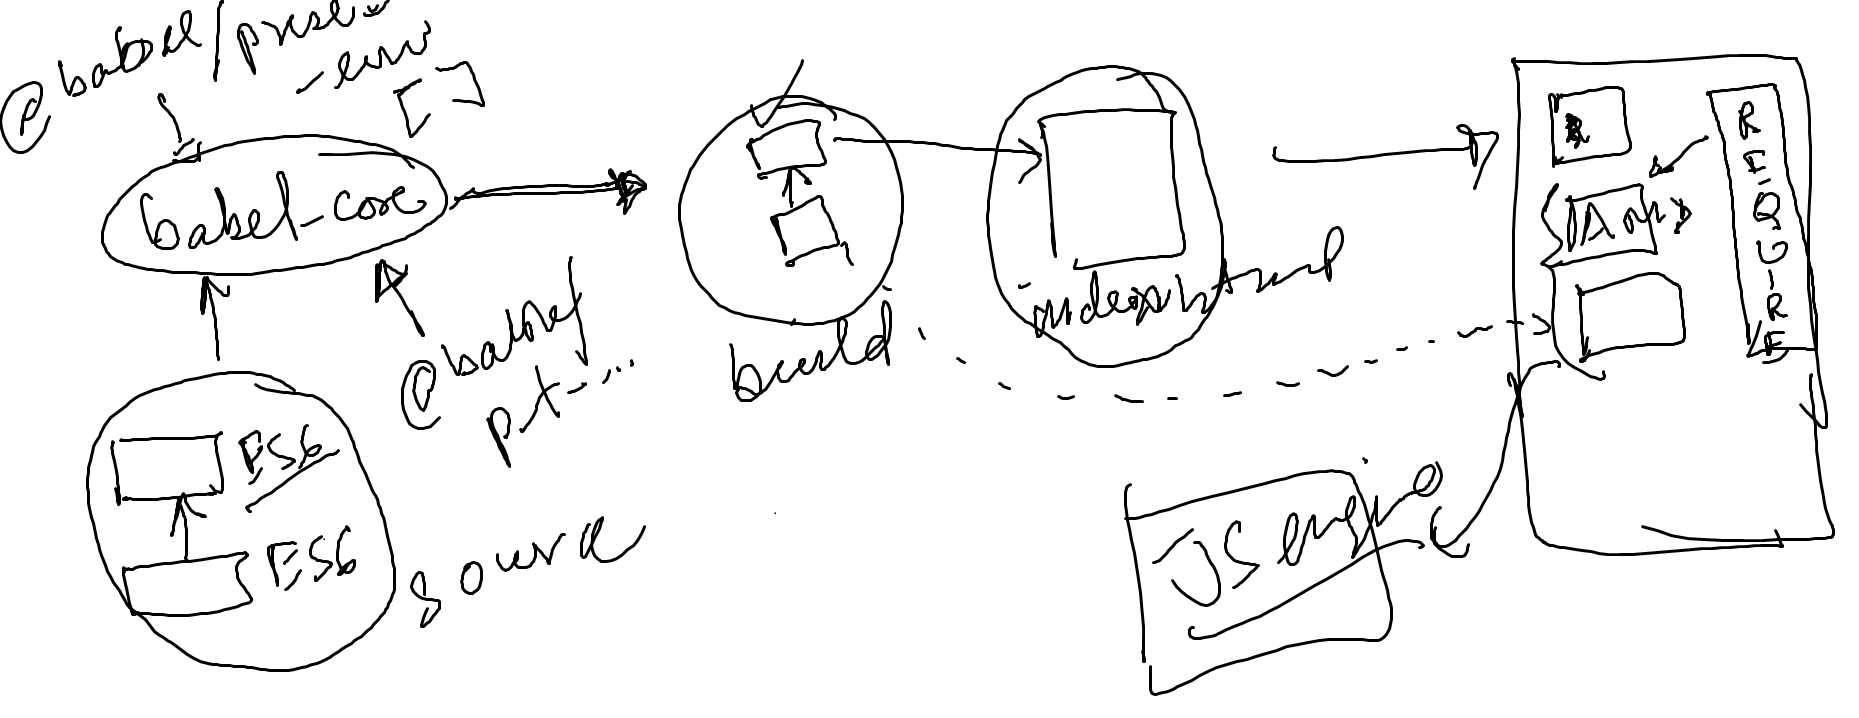 @babel/preset
-env
babel-core
@babel
ES6
ES6
source
build
index.html
R
AMD
REQUIRE
JS engine